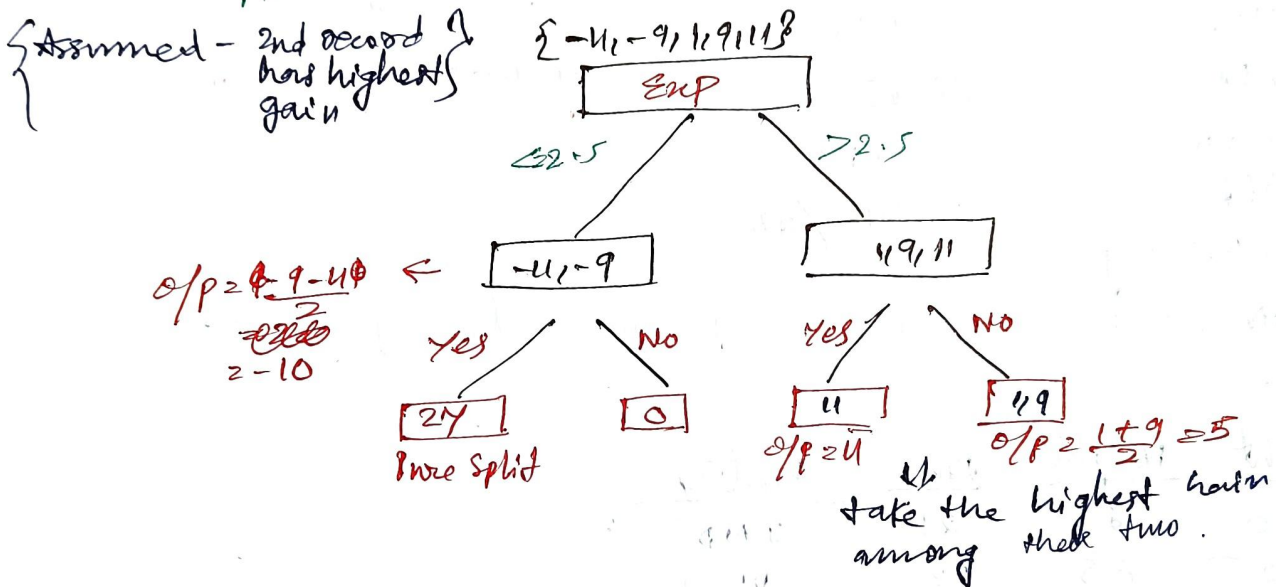 {Assumed - 2nd record
has highest}
gain
{-11, -9, 1, 9, 11}
Exp
<=2.5
>2.5
o/p = -9-11
2
= -10
←
-11, -9
1, 9, 11
Yes
No
Yes
No
2Y
0
11
1, 9
Pure Split
o/p = 11
o/p = 1+9 = 5
2
take the highest Gain
among these two.